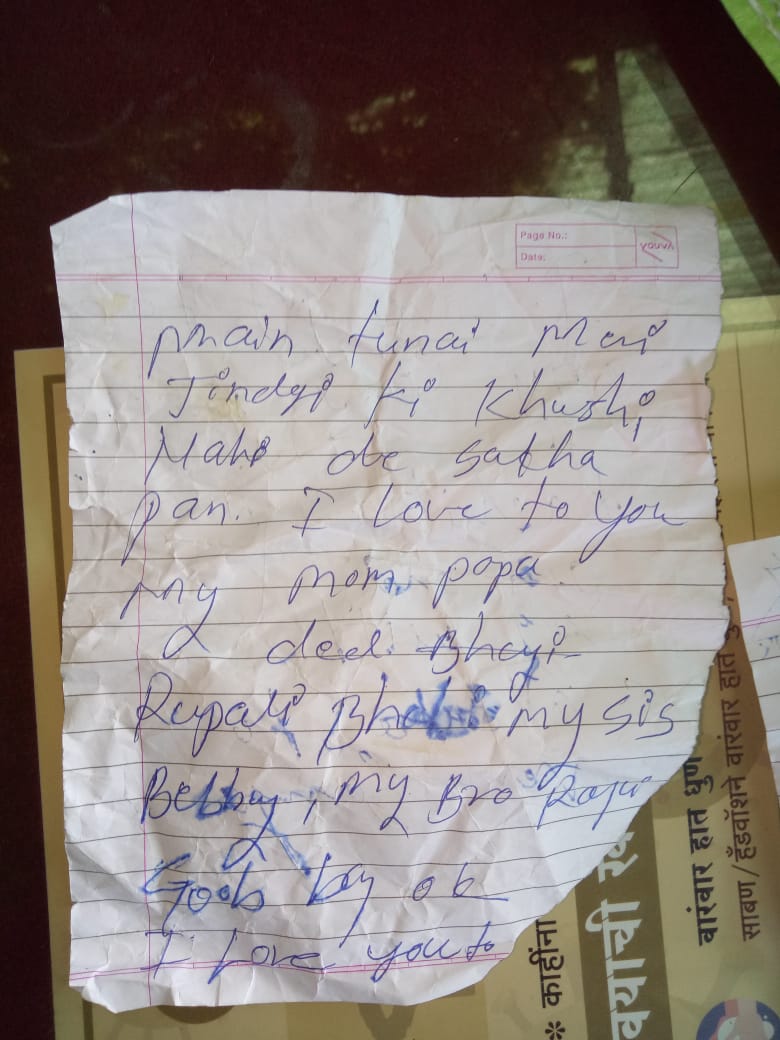 Page No.:
Date:
youva
main tunai Meri
Jindgi ki Khushi
Nahi de sakha
pan. I Love to you
my mom papa
ded Bhayi
Rupali Bhabhi my sis
Bebby, my Bro
Goob by
I Love you to
काहींना
वारंवार हात धुणे
साबण/हँडवॉशने वारंवार हात